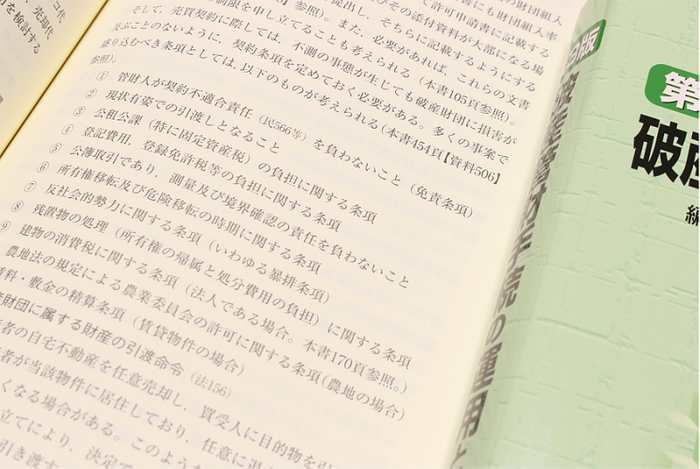 コ代
売却代
を検討する
て許可申請書に記載する
書にも財団組入
びその添付資料が大部になる場
提出し、そちらに記載するようにする
制限を申し立てることも考えられる(本書105頁参照)。
参照)。また、必要があれば、これらの文書
そして、売買契約に際しては、不測の事態が生じても破産財団に損害が
及ぶことのないように、契約条項を定めておく必要がある。多くの事案で
盛り込むべき条項としては、以下のものが考えられる(本書454頁【資料506】
参照)。
① 管財人が契約不適合責任(民566等)を負わないこと(免責条項)
② 現状有姿での引渡しとなること
③ 公租公課(特に固定資産税)の負担に関する条項
④ 登記費用、登録免許税等の負担に関する条項
⑤ 公簿取引であり、測量及び境界確認の責任を負わないこと
⑥ 所有権移転及び危険移転の時期に関する条項
⑦ 反社会的勢力に関する条項(いわゆる暴排条項)
⑧ 残置物の処理(所有権の帰属と処分費用の負担)に関する条項
⑨ 建物の消費税に関する条項(法人である場合。本書170頁参照。)
農地法の規定による農業委員会の許可に関する条項(農地の場合)
料・敷金の精算条項(賃貸物件の場合)
財団に属する財産の引渡命令(法156)
者の自宅不動産を任意売却し、買受人に目的物を引
者が当該物件に居住しており、任意に退
くなる場合がある。このような
立てにより、決定で
引き渡す
版
第
破産
編